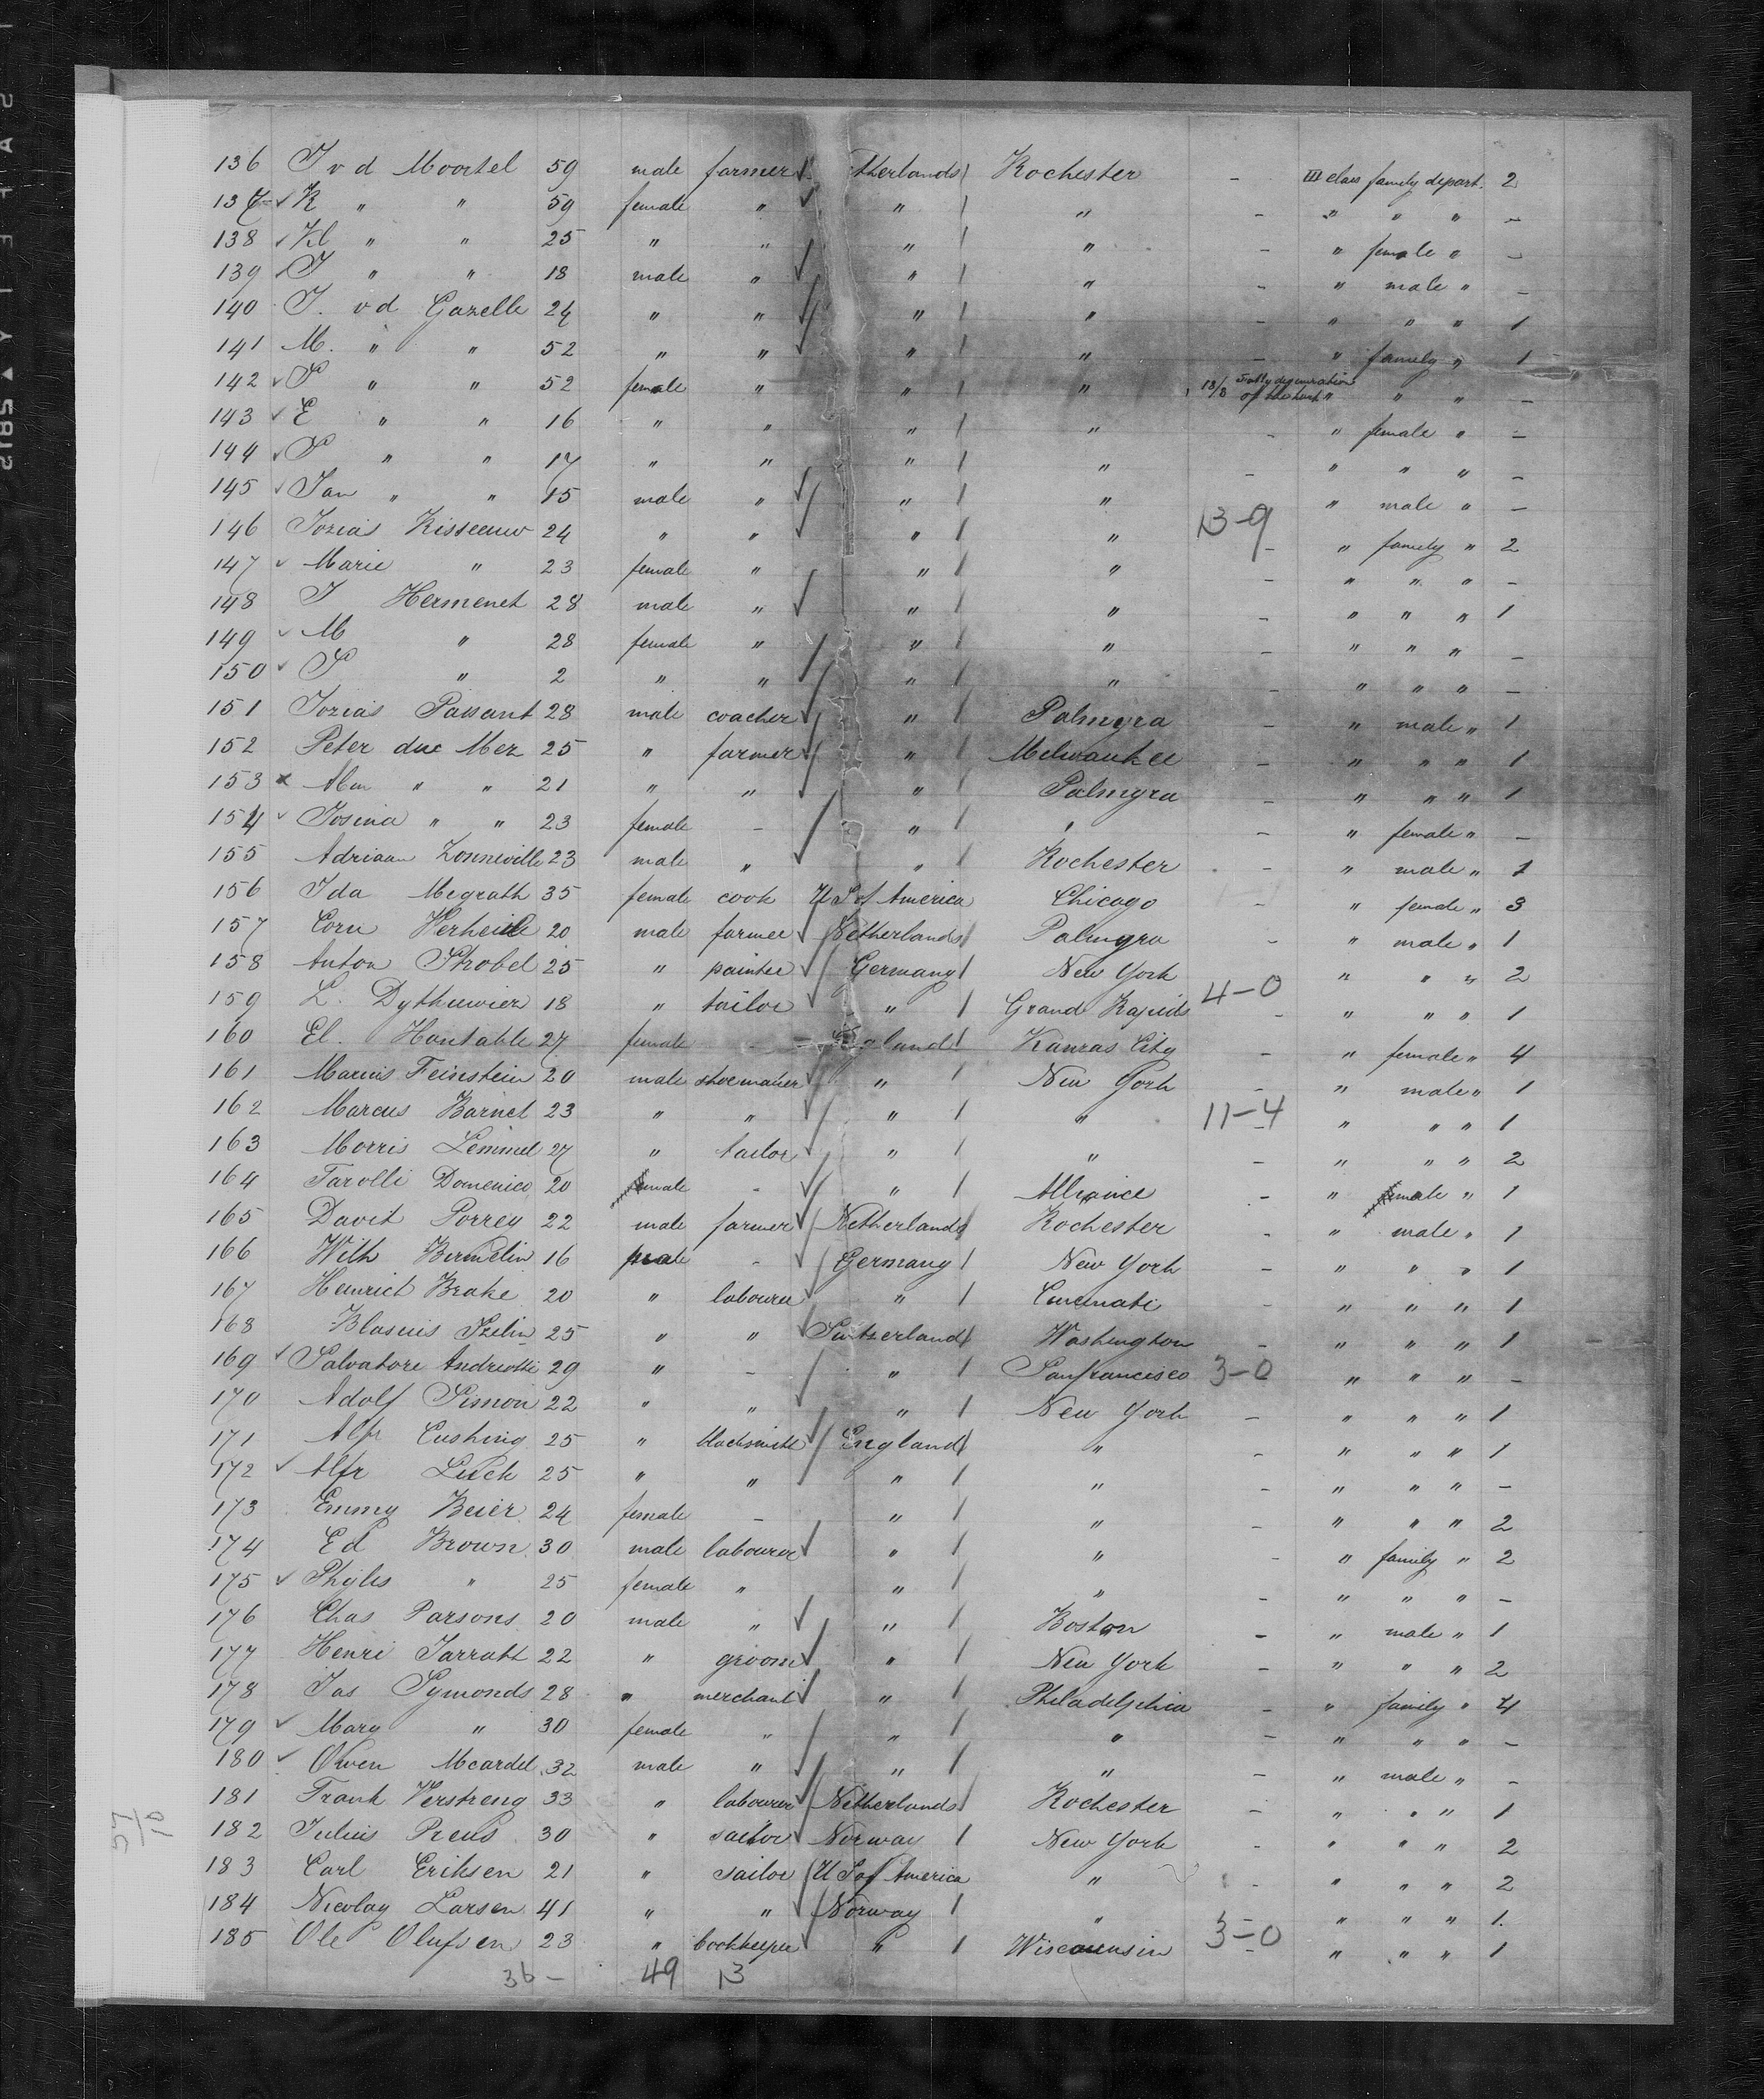 136 I v d Moortel 59 male farmer therlands Rochester - III class family depart. 2
137 K " " 59 female " " " - " " " -
138 Kl " " 25 " " " " - " female " -
139 I " " 18 male " " " - " male " -
140 I. v d Gazelle 24 " " " " - " " " 1
141 M. " " 52 " " " " - " family " 1
142 P " " 52 female " " " 13/8 Fatty degeneration of the heart " " " -
143 E " " 16 " " " " - " female " -
144 P " " 17 " " " " - " " " -
145 Jan " " 15 male " " " " male " -
146 Jozias Risseeuw 24 " " " " 13-9 - " family " 2
147 Marie " 23 female " " " - " " " -
148 I Hermenet 28 male " " " - " " " 1
149 M " 28 female " " " - " " " -
150 P " 2 " " " " - " " " -
151 Jozias Passant 28 male coacher " Palmyra - " male " 1
152 Peter due Mez 25 " farmer " Milwaukee - " " " 1
153 x Abm " " 21 " " " Palmyra - " " " 1
154 Josina " " 23 female - " " - " female " -
155 Adriaan Zonneville 23 male " " Rochester - " male " 1
156 Ida Megrath 35 female cook U S of America Chicago - " female " 3
157 Corn Verheide 20 male farmer Netherlands Palmyra - " male " 1
158 Anton Strobel 25 " painter Germany New York " " " 2
159 L. Dythuwier 18 " tailor " Grand Rapids 4-0 - " " " 1
160 El. Hontable 27 female - England Kansas City - " female " 4
161 Marius Feinstein 20 male shoemaker " New York - " male " 1
162 Marcus Barnet 23 " " " " 11-4 - " " " 1
163 Morris Lemmel 27 " tailor " " - " " " 2
164 Tarolli Domenico 20 male - " Alliance - " male " 1
165 David Porrey 22 male farmer Netherlands Rochester - " male " 1
166 Wilh 16 male - Germany New York - " " " 1
167 Heinrich Brake 20 " labourer " Cincinati - " " " 1
168 Blasius 25 " " Switzerland Washington - " " " 1
169 Salvatore Andreotti 29 " - " Sanfrancisco 3-0 " " " -
170 Adolf Simon 22 " " " New York - " " " 1
171 Alfr Cushing 25 " blacksmith England " - " " " 1
172 Alfr Luck 25 " " " " - " " " -
173 Emmy Beier 24 female - " " - " " " 2
174 Ed Brown 30 male labourer " " - " family " 2
175 Phylis " 25 female " " " - " " " -
176 Chas Parsons 20 male " " Boston - " male " 1
177 Henri Jarratt 22 " groom " New York - " " " 2
178 Jas Symonds 28 " merchant " Philadelphia - " family " 4
179 Mary " 30 female " " " - " " " -
180 Owen Mcardel 32 male " " " - " male " -
181 Frank Verstreng 33 " labourer Netherlands Rochester - " " " 1
182 Julius Preus 30 " sailor Norway New York - " " " 2
183 Carl Eriksen 21 " sailor U S of America " - " " " 2
184 Nicolay Larsen 41 " " Norway " - " " " 1.
185 Ole Olufsen 23 " bookkeeper " Wisconsin 3-0 - " " " 1
36 - 49 13